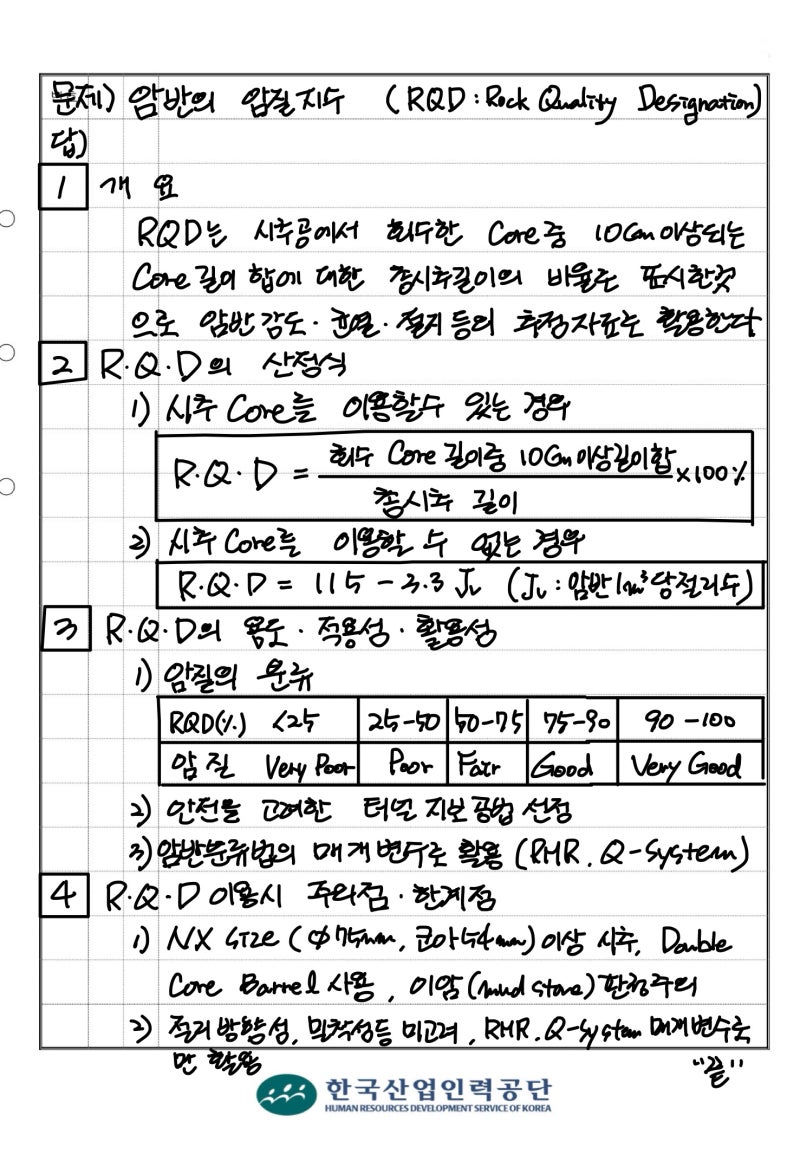 문제) 암반의 암질지수 (RQD : Rock Quality Designation)
답)
1 개 요
RQD는 시추공에서 회수한 Core 중 10cm 이상되는
Core 길이 합에 대한 총시추길이의 비율로 표시한것
으로 암반강도·균열·절리 등의 추정자료로 활용한다
2 R.Q.D의 산정식
1) 시추 Core를 이용할수 있는 경우
R.Q.D = 회수 Core 길이중 10cm 이상길이합 / 총시추 길이 ×100%
2) 시추 Core를 이용할 수 없는 경우
R.Q.D = 115 - 3.3 Jv (Jv : 암반 1m³당 절리수)
3 R.Q.D의 용도·적용성·활용성
1) 암질의 분류
RQD(%) <25 25-50 50-75 75-90 90-100
암 질 Very Poor Poor Fair Good Very Good
2) 안전을 고려한 터널 지보공법 선정
3) 암반분류법의 매개변수로 활용 (RMR. Q-System)
4 R.Q.D 이용시 주의점·한계점
1) NX size (φ75mm, 코아54mm) 이상 시추, Double
Core Barrel 사용, 이암(mud stone) 판정주의
2) 절리 방향성, 밀착성등 미고려, RMR. Q-System 매개변수로
만 활용 "끝"
한국산업인력공단
HUMAN RESOURCES DEVELOPMENT SERVICE OF KOREA